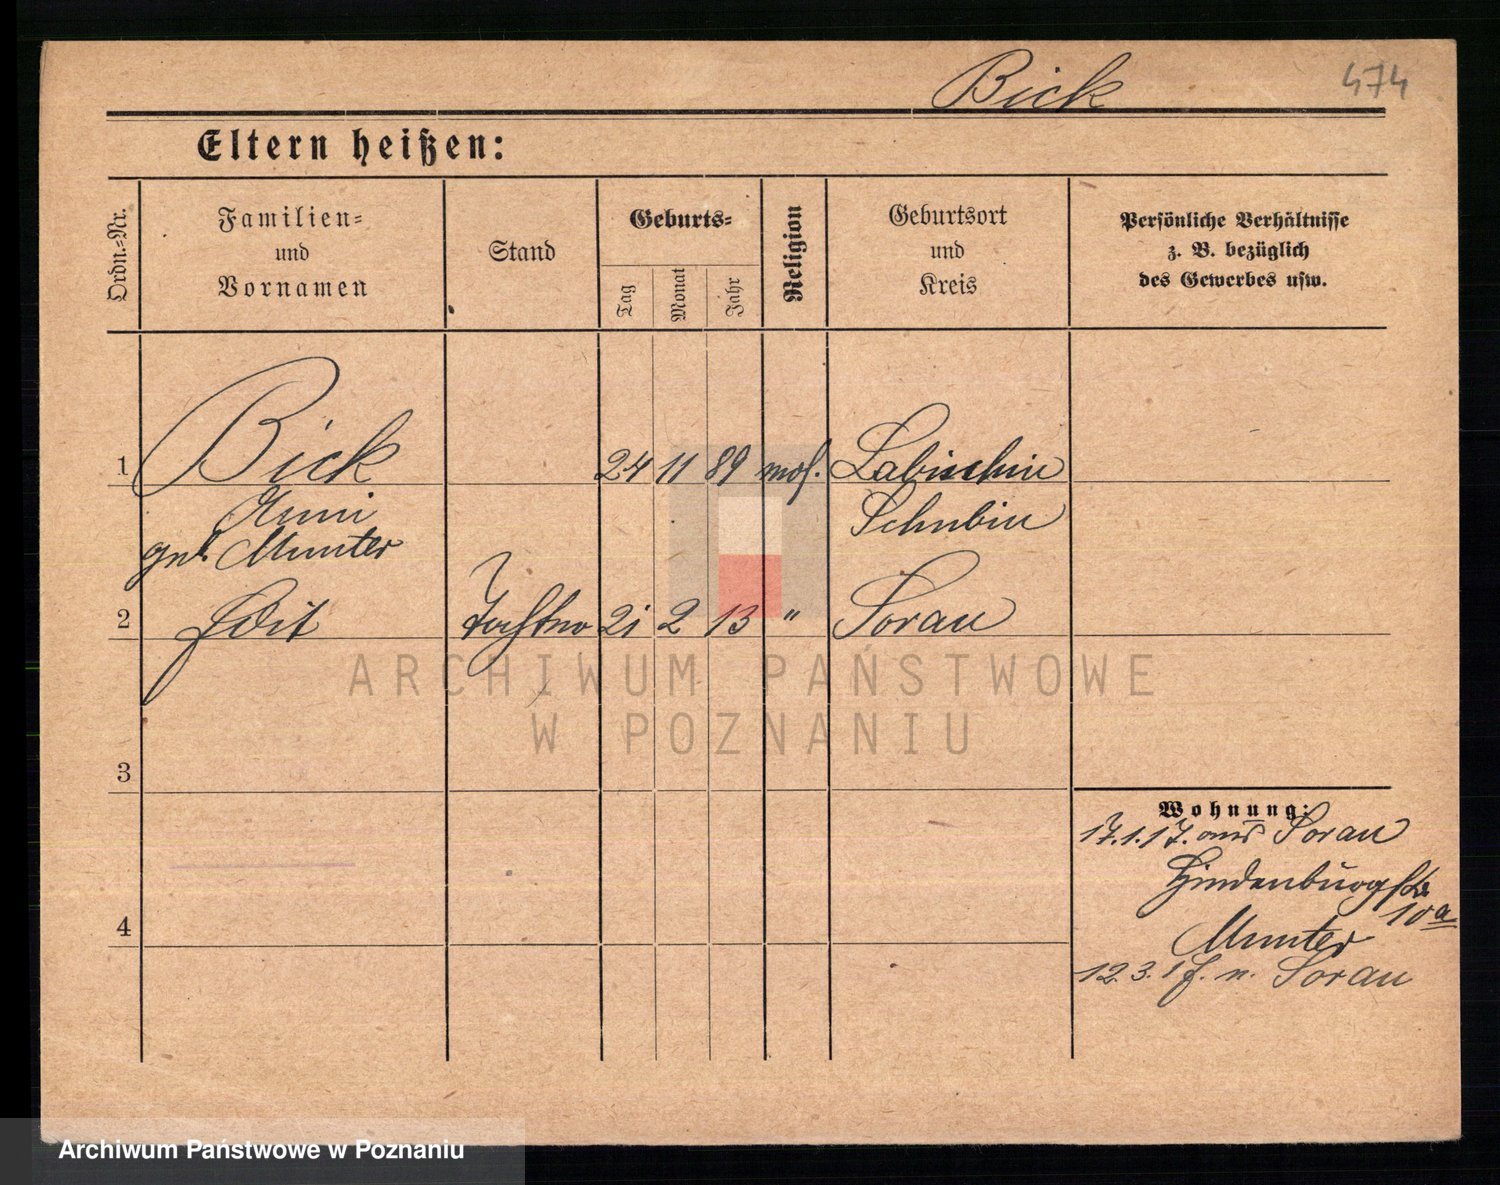 Bick
474
Eltern heißen:
Ordn.=Nr.
Familien=
und
Vornamen
Stand
Geburts=
Tag
Monat
Jahr
Religion
Geburtsort
und
Kreis
Persönliche Verhältnisse
z. B. bezüglich
des Gewerbes usw.
1 Bick 24 11 89 mos. Labischin
Anni Schubin
geb. Munter
2 Edit Tochter 21 2 13 " Sorau
3
4
Wohnung:
17.1.17. aus Sorau
Hindenburgstr
10a
Munter
12.3.17. n. Sorau
ARCHIWUM PAŃSTWOWE
W POZNANIU
Archiwum Państwowe w Poznaniu